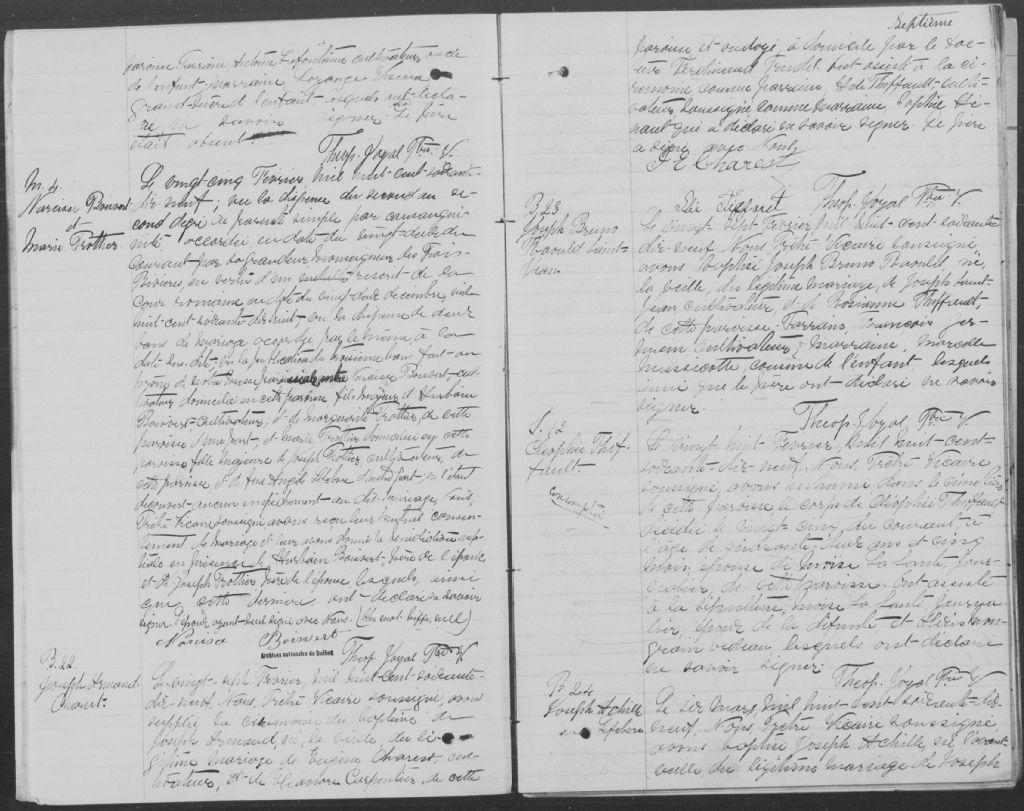 paroisse Parrain Antoine Lafontaine cultivateur oncle
de l'enfant, Marraine
grand-mère de l'enfant lesquels ont décla-
ré ne savoir signer. Le père
était absent.
Theop. Joyal Ptre V.
M. 4.
Narcisse Boisvert
et
Marie Trottier
Le vingt-cinq Fevrier mil huit-cent-soixante-
dix-neuf; vu la dispense du second au se-
cond degré de parenté simple par consangui-
nité, accordée en date du vingt-deux du
courant par Sa Grandeur Monseigneur des Trois-
Rivières, en vertu d'un rescrit de la
Cour romaine en date du vingt-deux decembre, mil
huit-cent-soixante-dix-huit, vu la dispense de deux
bans de mariage accordée par le même, à la
date sus-dite; vu la publication du troisième ban fait au
prône de notre messe paroissiale entre Narcisse Boisvert cul-
tivateur, domicilié en cette paroisse fils majeur d'Hurbain
Boisvert cultivateur, & de Marguerite Trottier, de cette
paroisse d'une part, et Marie Trottier domiciliée en cette
paroisse fille majeure de Joseph Trottier cultivateur, de
cette paroisse, et de feue Angèle d'autre part, ne s'étant
découvert aucun empêchement au dit mariage Nous,
Prêtre Vicaire soussigné avons reçu leur mutuel consen-
tement de mariage et leur avons donné la bénédiction nup-
tiale en présence de Hurbain Boisvert, père de l'époux,
et de Joseph Trottier père de l'épouse lesquels, ainsi
que cette dernière, ont déclaré ne savoir
signer. l'époux ayant seul signé avec Nous. (Un mot biffé, nul)
Narcisse Boisvert
Archives nationales du Québec
Theop. Joyal Ptre V.
B. 22.
Joseph Armand
Charest.
Le vingt-sept Fevrier, mil huit-cent-soixante-
dix-neuf, Nous, Prêtre Vicaire soussigné, avons
suppléé la cérémonie du baptême de
Joseph Armand, né, la veille du lé-
gitime mariage de Eugène Charest, cul-
tivateur, & de Eleanore Carpentier, de cette
Septième
paroisse et ondoyé, à domicile par le Doc-
teur Ferdinand Trudel. ont assisté à la cé-
rémonie comme parrain Thiffault, culti-
vateur soussigné comme marraine, Sophie
qui a déclaré ne savoir signer. Le père
a signé avec Nous.
J E Charest
Theop. Joyal Ptre V.
B. 23
Joseph Bruno
Raould Saint-
Jean.
Le vingt Sept Fevrier, mil huit-cent-soixante
dix-neuf, Nous Prêtre Vicaire soussigné
avons baptisé Joseph Bruno Raould né,
la veille du légitime mariage, de Joseph Saint-
Jean, cultivateur, & de Thiffault,
de cette paroisse. Parrain, François Ger-
main cultivateur; marraine, Marcelle
Massicotte, cousine de l'enfant, lesquels
ainsi que le père ont déclaré ne savoir
signer.
Theop. Joyal Ptre V.
S. 12
Cléophée Thif-
fault.
Consomption
Le vingt-huit Fevrier, Mil huit-cent-
soixante-dix-neuf, Nous, Prêtre Vicaire
soussigné, avons inhumé dans le cimetière
de cette paroisse, le corps de Cléophée Thiffault
décédée le vingt-cinq, du courant à
l'âge de quarante-deux ans et cinq
mois, épouse de Moïse La Lanté, jour-
nalier, de cette paroisse. Ont assisté
à la sépulture, Moïse La Lanté, journa-
lier, époux de la défunte et Mon-
grain bedeau lesquels ont déclaré
ne savoir signer.
Theop. Joyal Ptre V.
B. 24
Joseph Achille
Lefebvre
Le dix Mars, mil huit-cent-soixante-dix-
neuf, Nous, Prêtre Vicaire soussigné
avons baptisé Joseph Achille, né l'avant-
veille du légitime mariage de Joseph